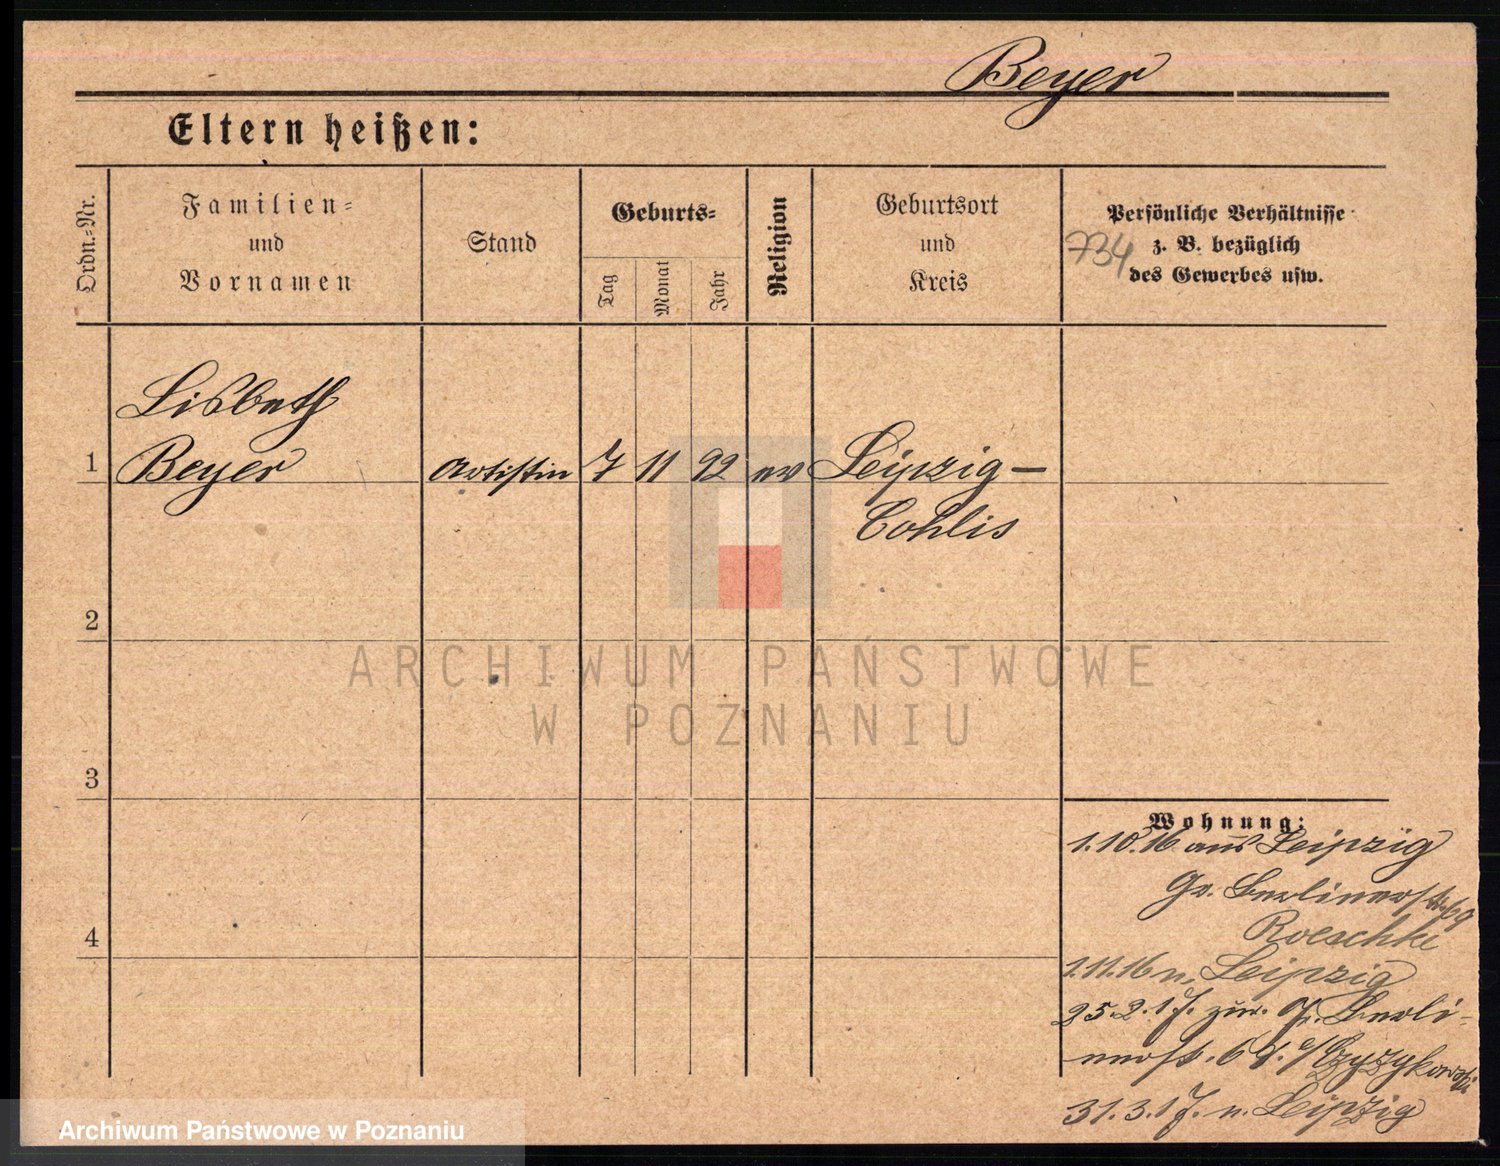 Beyer
Eltern heißen:
Ordn.-Nr.
Familien-
und
Vornamen
Stand
Geburts-
Tag
Monat
Jahr
Religion
Geburtsort
und
Kreis
Persönliche Verhältnisse
z. B. bezüglich
des Gewerbes usw.
734
Lisbeth
1 Beyer Artistin 7 11 92 ev Leipzig-
Cohlis
2
3
4
ARCHIWUM PAŃSTWOWE
W POZNANIU
Wohnung:
1.10.16 aus Leipzig
Gr. Berlinerstr. 69
Roeschke
1.11.16 n. Leipzig
25.2.17. zur. Gr. Berli-
nerst. 67.
31.3.17. n. Leipzig
Archiwum Państwowe w Poznaniu